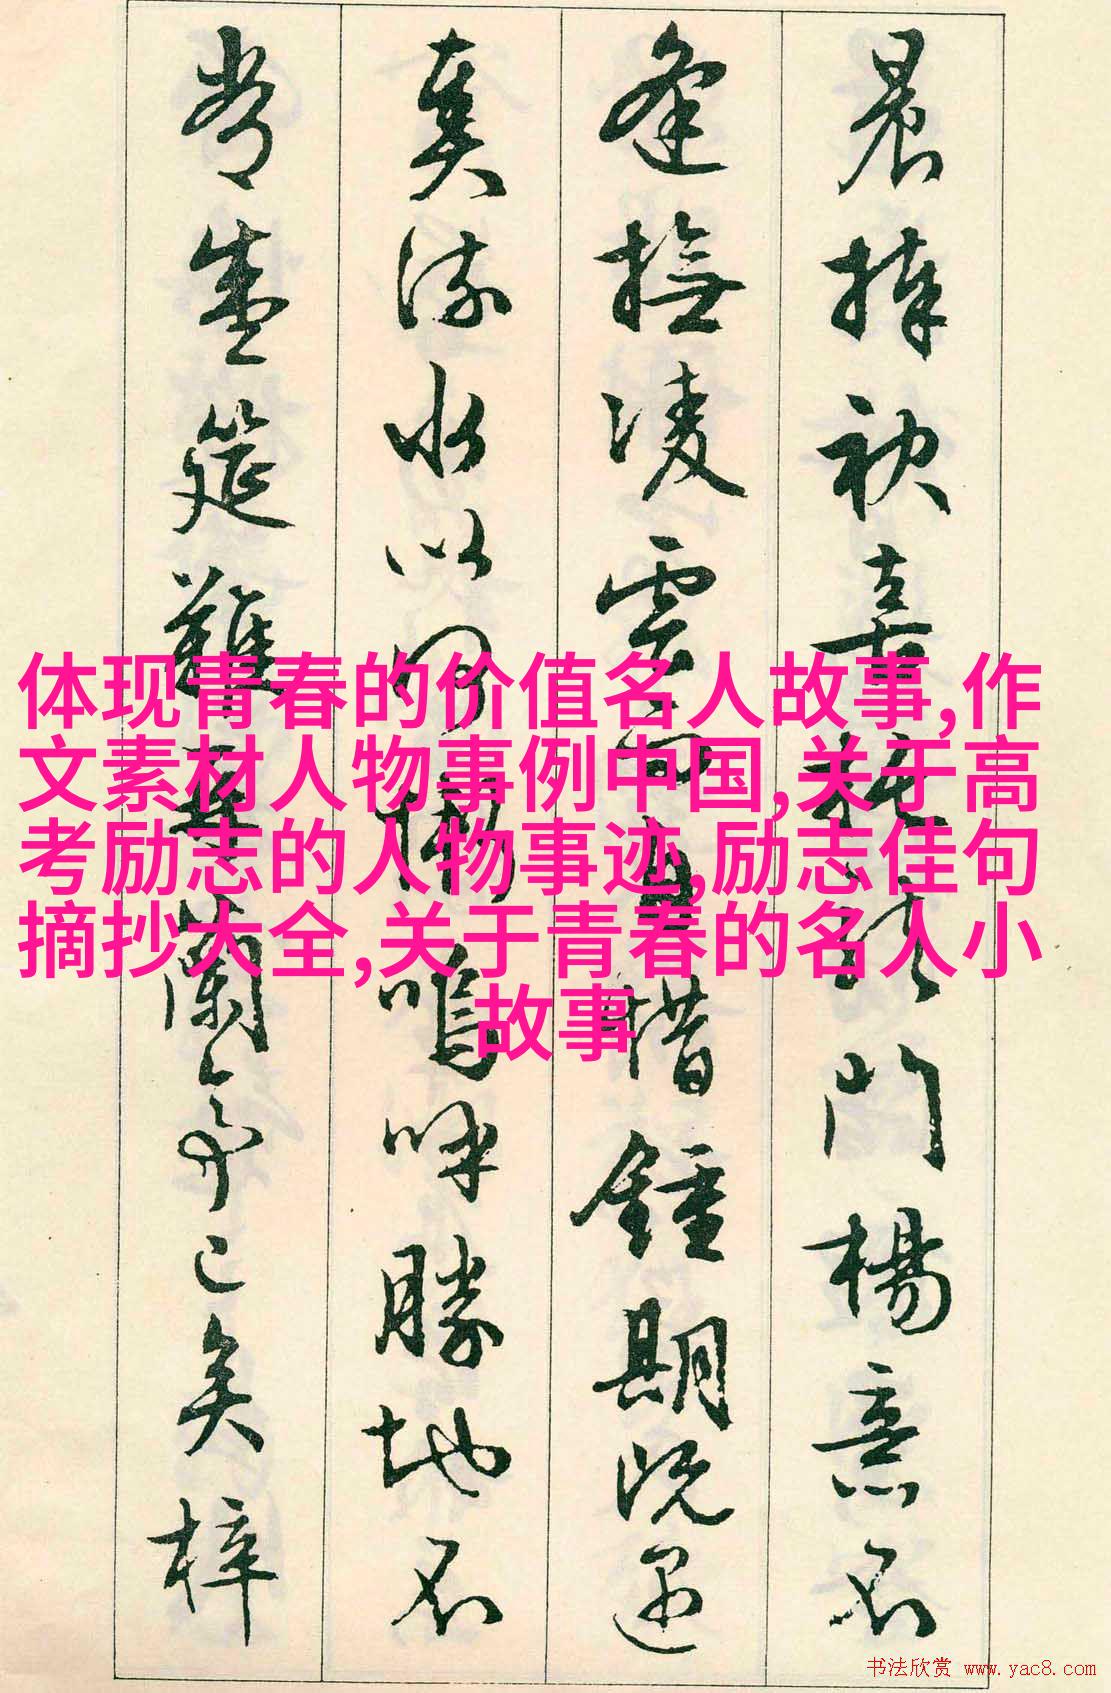 晨捧袂喜托龍門楊意不
逢撫凌雲而自惜鍾期既遇
奏流水以何慚嗚呼勝地不
常盛筵難再蘭亭已矣梓
体现青春的价值名人故事,作
文素材人物事例中国,关于高
考励志的人物事迹,励志佳句
摘抄大全,关于青春的名人小
故事
书法欣赏 www.yac8.com